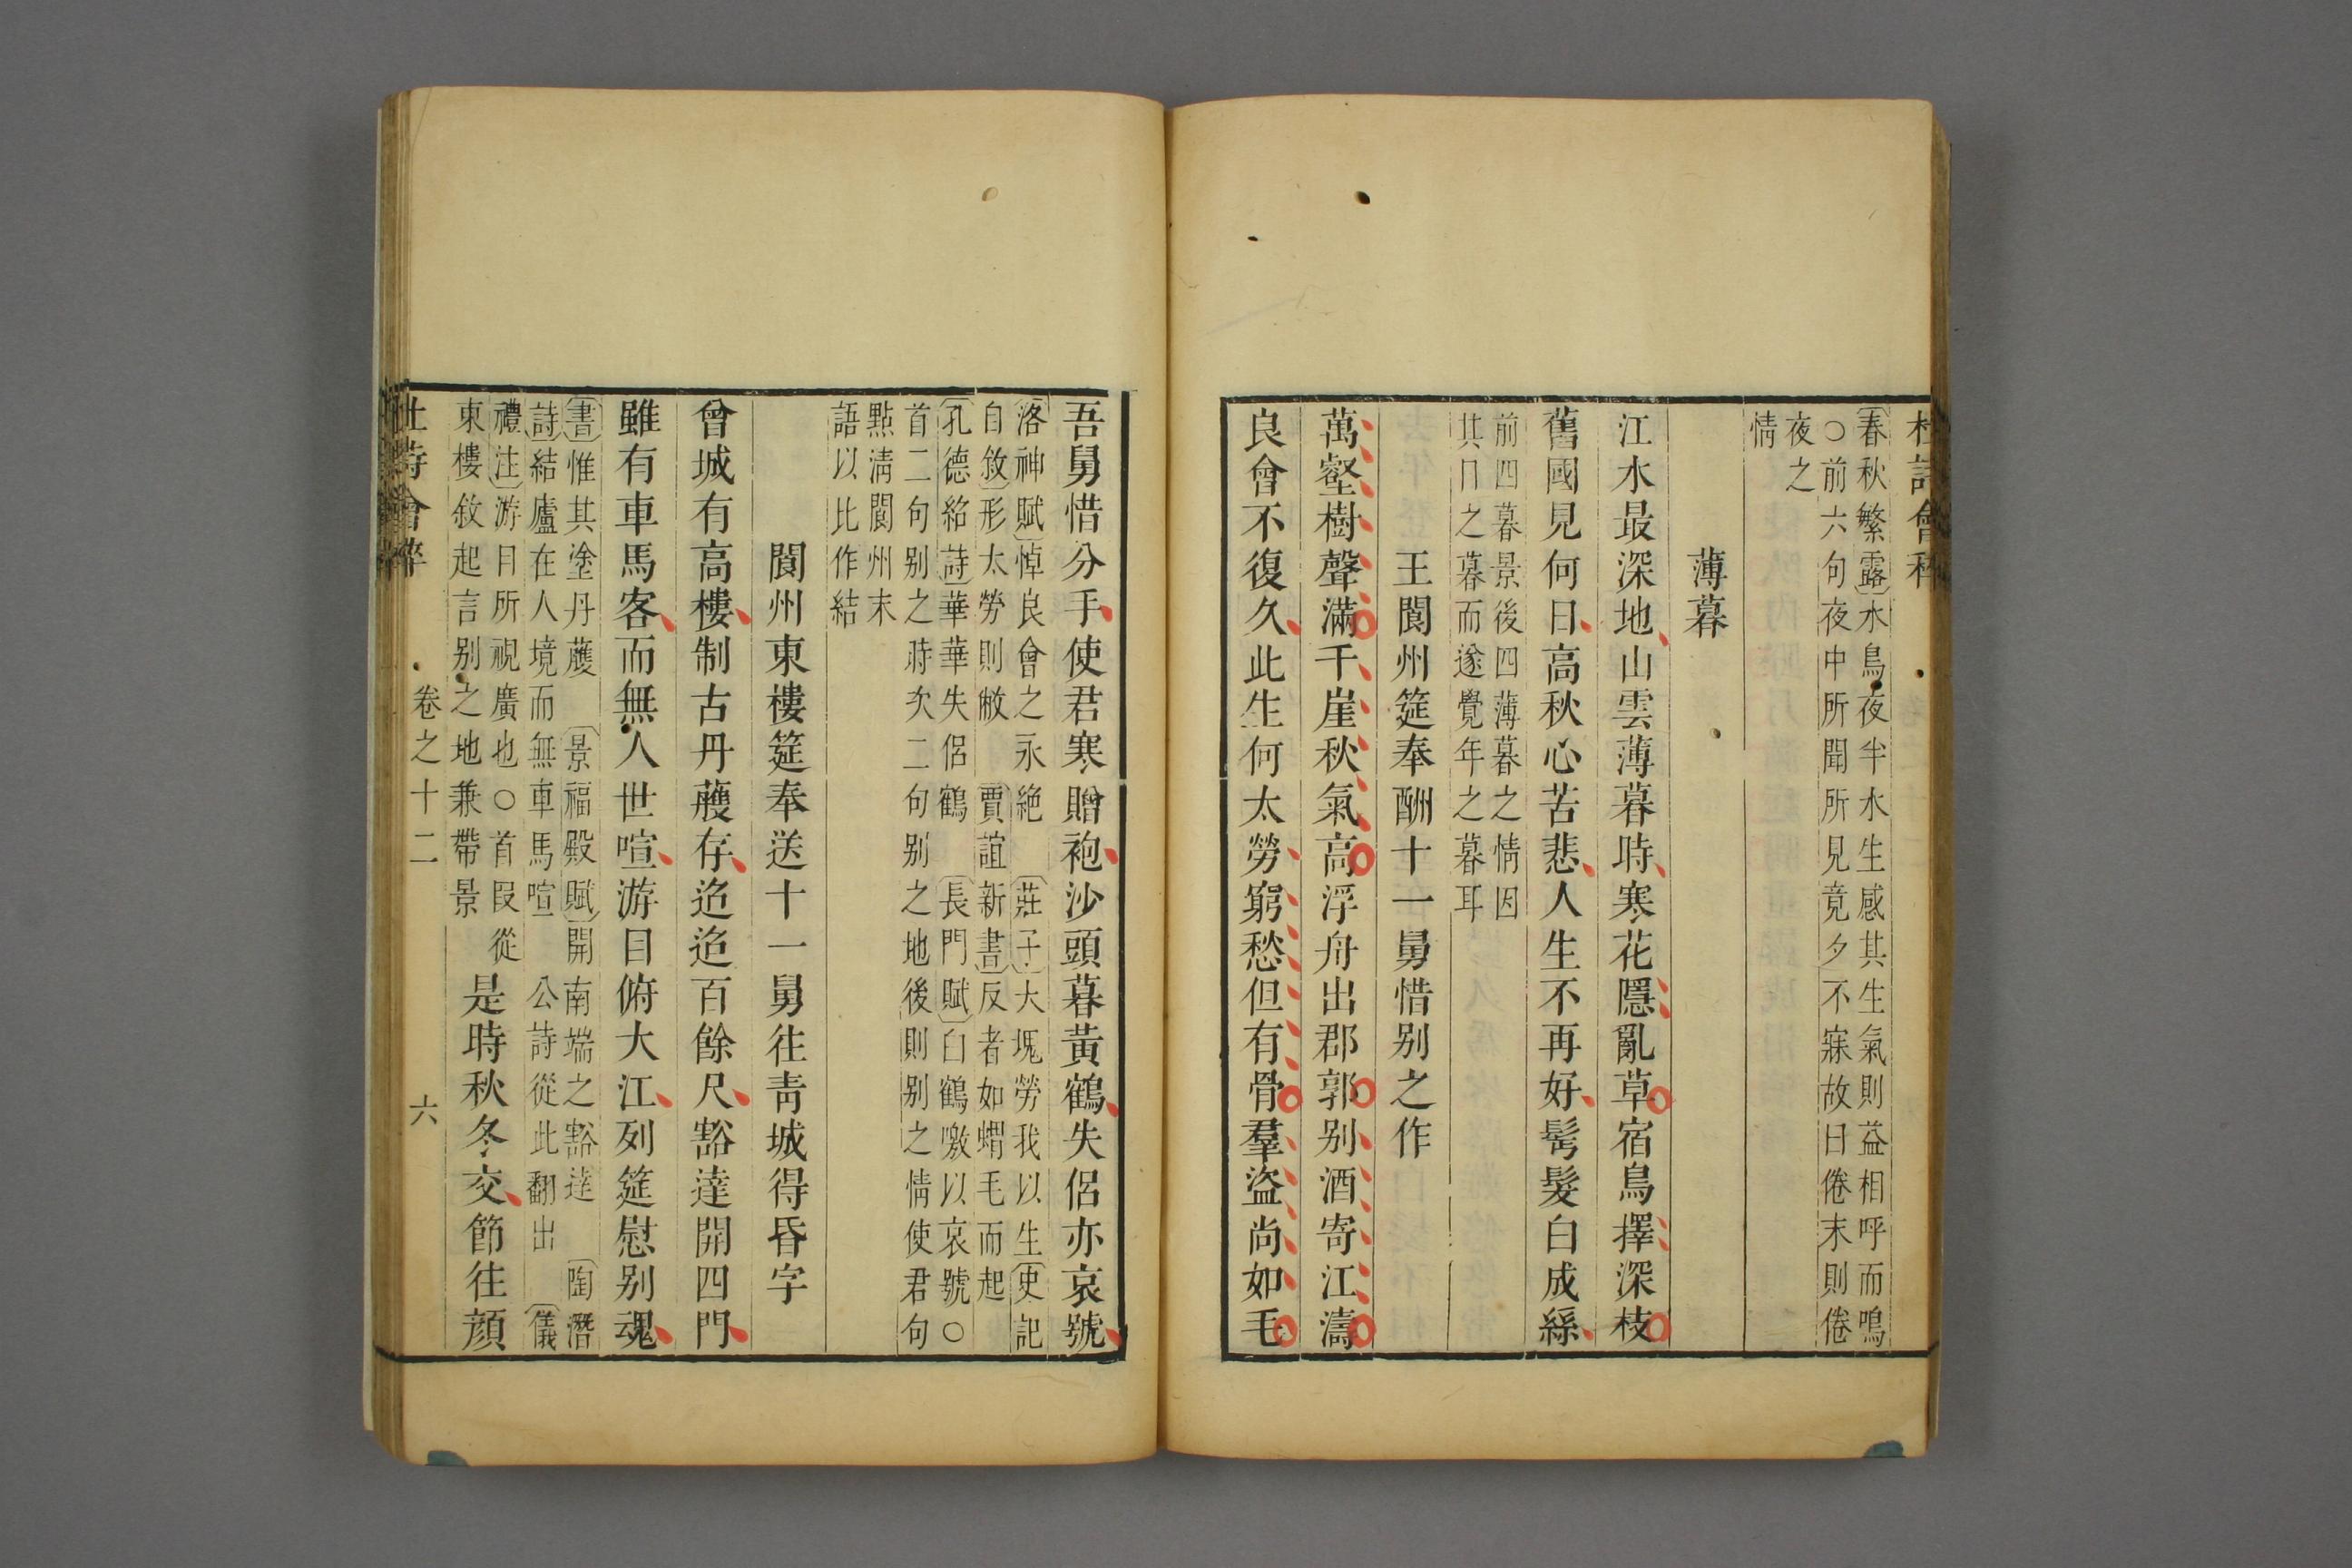 杜詩會稡
春秋繁露水鳥夜半水生感其生氣則益相呼而鳴
○前六句夜中所聞所見竟夕不寐故曰倦末則倦
夜之
情
薄暮
江水最深地山雲薄暮時寒花隱亂草宿鳥擇深枝
舊國見何日高秋心苦悲人生不再好髩髮白成絲
前四暮景後四薄暮之情因
其日之暮而遂覺年之暮耳
王閬州筵奉酬十一舅惜别之作
萬壑樹聲滿千崖秋氣高浮舟出郡郭别酒寄江濤
良會不復久此生何太勞窮愁但有骨羣盜尚如毛
吾舅惜分手使君寒贈袍沙頭暮黄鶴失侣亦哀號
洛神賦悼良會之永絶 莊子大塊勞我以生史記
自敘形太勞則敝 賈誼新書反者如蝟毛而起
孔德紹詩華華失侣鶴 長門賦白鶴噭以哀號○
首二句别之時次二句别之地後則别之情使君句
點淸閬州末
語以比作結
閬州東樓筵奉送十一舅往靑城得昏字
曾城有高樓制古丹雘存迢迢百餘尺豁達開四門
雖有車馬客而無人世喧游目俯大江列筵慰别魂
書惟其塗丹雘 景福殿賦開南端之豁達 陶潛
詩結廬在人境而無車馬喧 公詩從此翻出 儀
禮注游目所視廣也○首段從
東樓敘起言别之地兼帶景
是時秋冬交節往顔
杜詩會稡
卷之十二
六